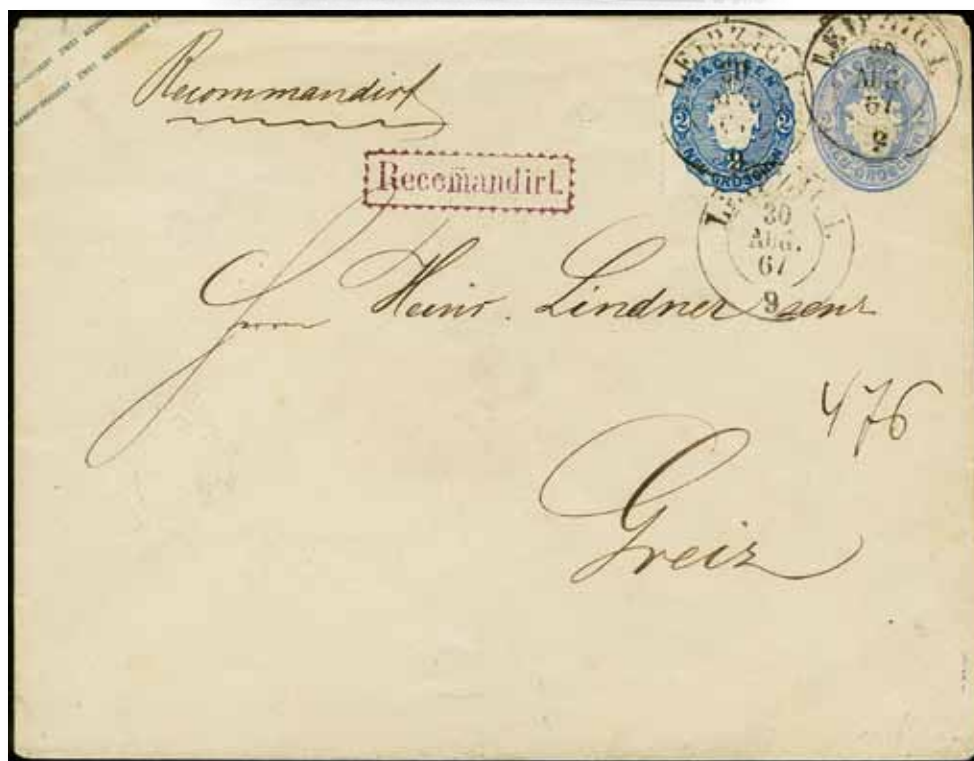 Recommandirt
Recomandirt.
SACHSEN
2 2
NEU-GROSCHEN
LEIPZIG I.
30
AUG.
67
9
SACHSEN
2 2
NEU-GROSCHEN
LEIPZIG I.
30
AUG.
67
LEIPZIG I.
30
AUG.
67
9
Herrn Heinr. Lindner senr
476
Greiz